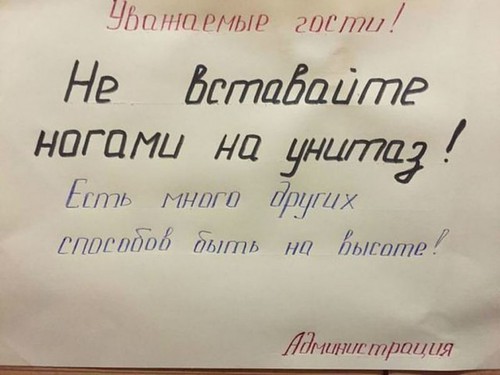 Уважаемые гости!
Не вставайте
ногами на унитаз!
Есть много других
способов быть на высоте!
Администрация